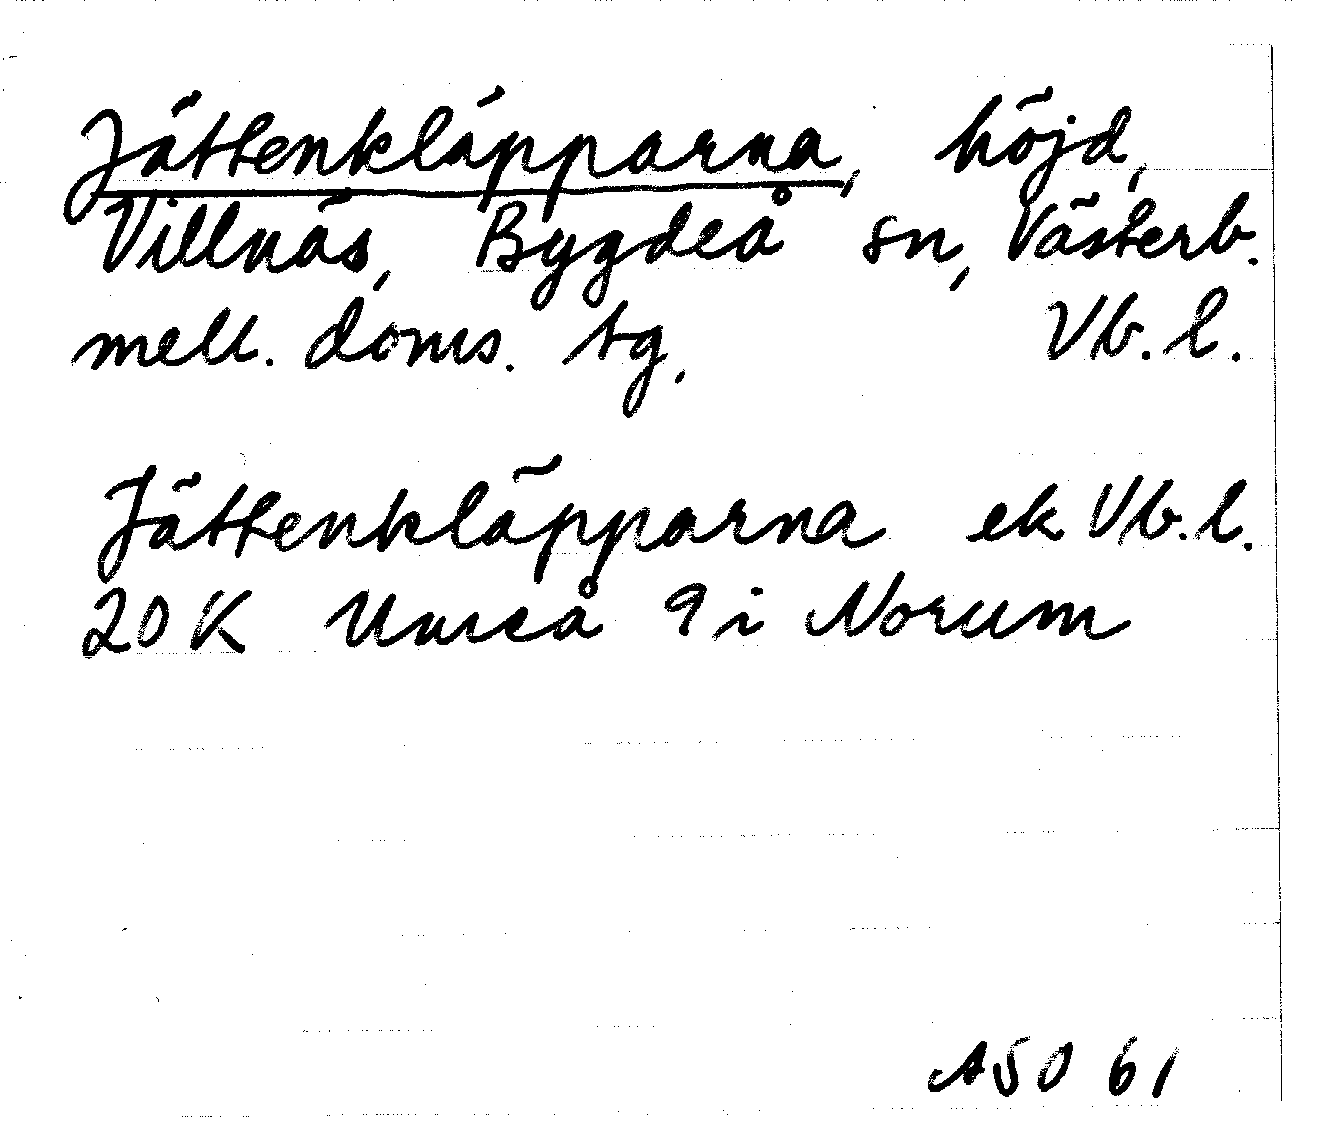 Jättenkläpparna, höjd,
Villnäs, Bygdeå sn, Västerb.
mell. doms. tg. Vb. l.
Jättenkläpparna ek Vb. l.
20 K Umeå 9 i Norum
ASO 61